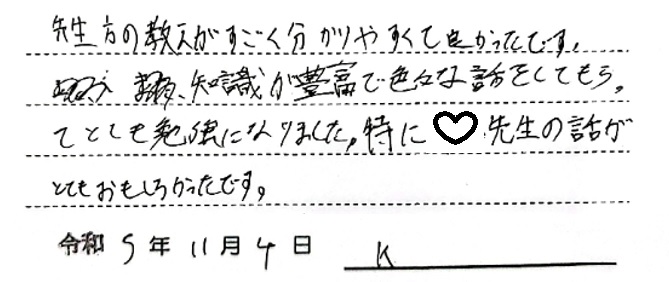 先生方の教え方がすごく分かりやすくて良かったです。
知識が豊富で色々な話をしてもらっ
てとても勉強になりました。特に♡先生の話が
とてもおもしろかったです。
令和5年11月4日 K